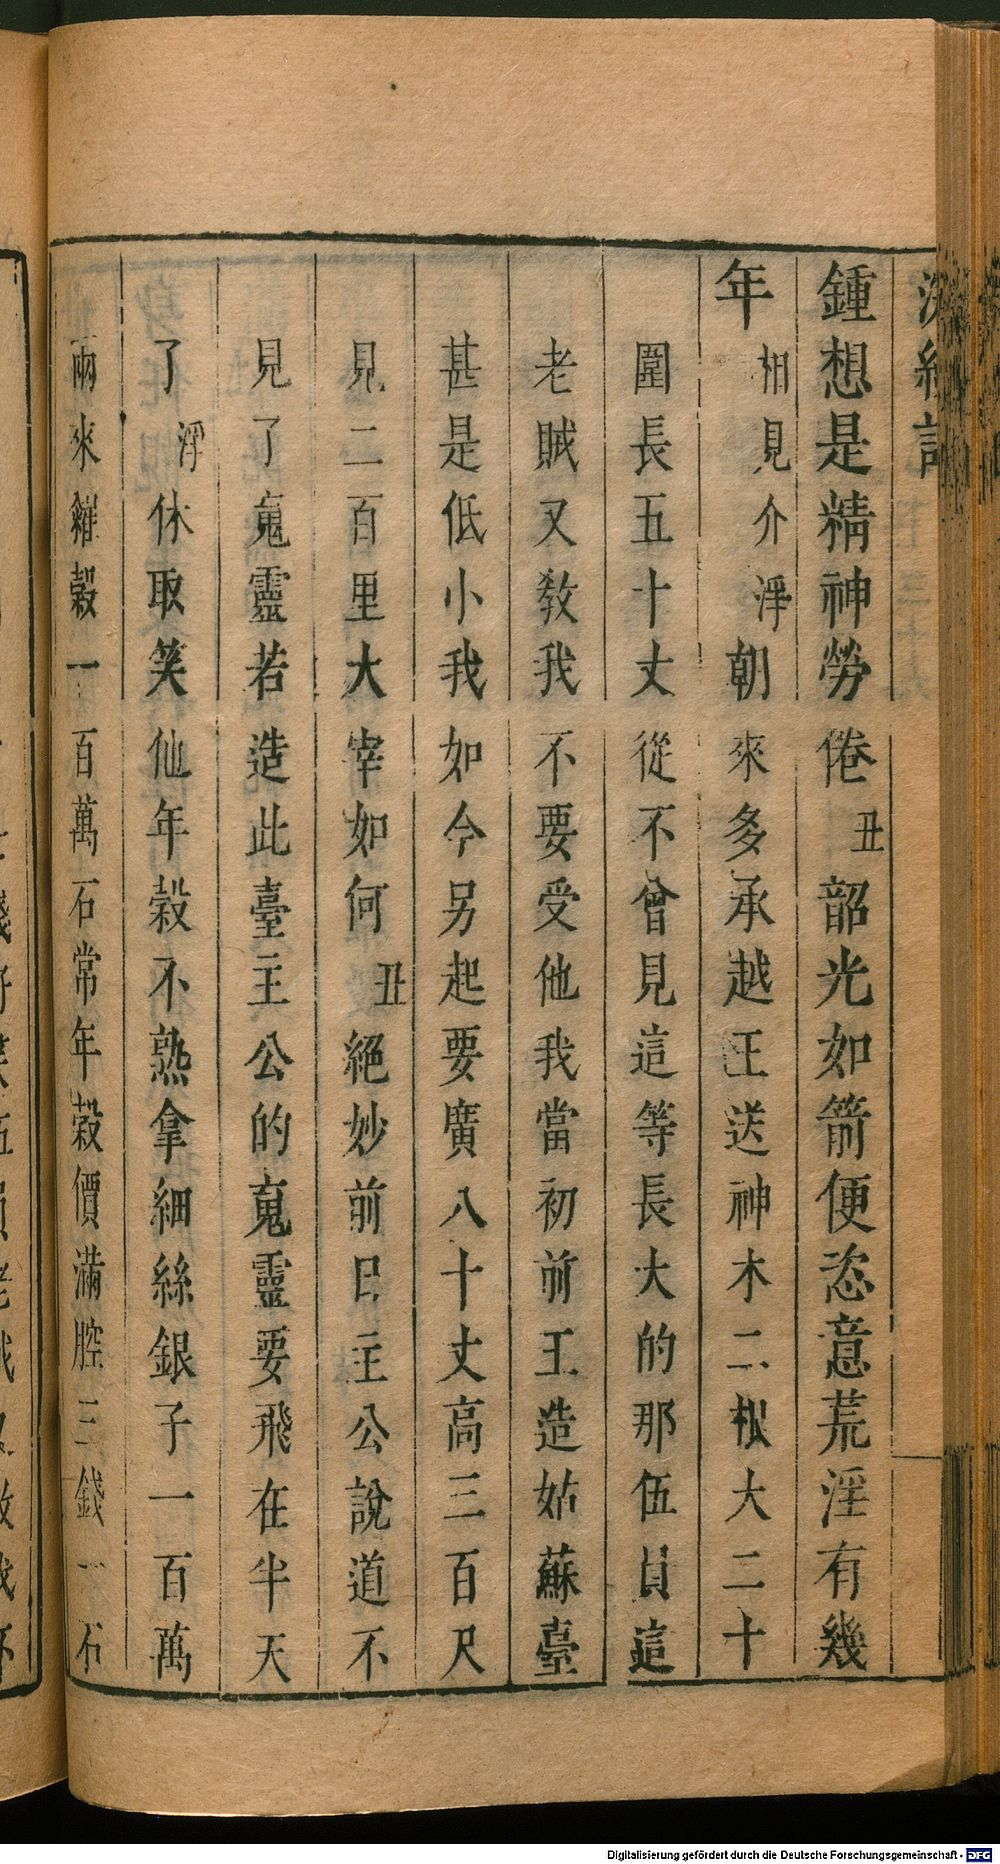 浣紗記
鍾想是精神勞倦丑韶光如箭便恣意荒淫有幾
年相見介淨朝來多承越王送神木二根大二十
圍長五十丈從不曾見這等長大的那伍員這
老賊又教我不要受他我當初前王造姑蘇臺
甚是低小我如今另起要廣八十丈高三百尺
見二百里大宰如何丑絕妙前日主公說道不
見了䰟靈若造此臺主公的䰟靈要飛在半天
了淨休取笑仙年穀不熟拿細絲銀子一百萬
兩來糴穀一百萬石常年穀價滿腔三錢一石
Digitalisierung gefördert durch die Deutsche Forschungsgemeinschaft - DFG